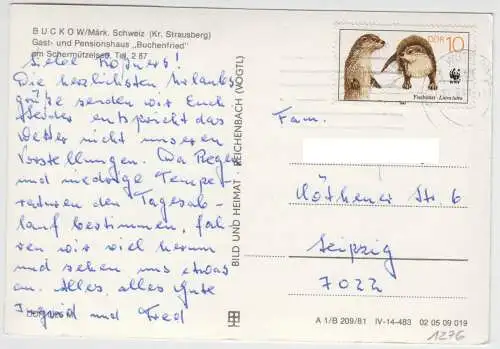 BUCKOW/Märk. Schweiz (Kr. Strausberg)
Gast- und Pensionshaus „Buchenfried"
am Schermützelsee, Tel. 2 87
Liebe
Die herzlichsten Urlaubs
grüße senden wir Euch
Leider entspricht das
Wetter nicht unseren
Vorstellungen. Da Regen
und niedrige Tempe-
raturen den Tagesab-
lauf bestimmen, fah-
ren wir viel herum
und sehen uns etwas
an. Alles, alles Gute
Ingrid und Fred
BILD UND HEIMAT · REICHENBACH (VOGTL)
DDR 10
WWF
Fischotter · Lutra lutra
Fam.
Köthener Str. 6
Leipzig
7022
A 1/B 209/81 IV-14-483 02 05 09 019
1276